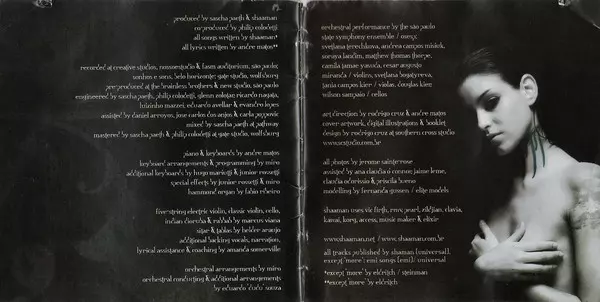 produced by sascha paeth & shaaman
co-produced by philip colodetti
all songs written by shaaman*
all lyrics written by andre matos**
recorded at creative studios, nonsoenudio & fasm auditorium, são paulo;
sonhos e sons, belo horizonte; gate studio, wolfsburg
pre-produced at the brainless brothers & new studio, são paulo
engineered by sascha paeth, philip colodetti, glenn zolotar, ricardo nagata,
luizinho mazzei, eduardo avellar & evandro lopes
assisted by daniel arroyos, jose carlos dos anjos & carla poppovic
mixed by sascha paeth at pathway
mastered by sascha paeth & philip colodetti at gate studio, wolfsburg
piano & keyboards by andre matos
keyboard arrangements & programming by miro
additional keyboards by hugo mariutti & junior rossetti
special effects by junior rossetti & miro
hammond organ by fabio ribeiro
five-string electric violin, classic violin, cello,
indian dilruba & rabab by marcus viana
sitar & tablas by helder araujo
additional backing vocals, narration,
lyrical assistance & coaching by amanda somerville
orchestral arrangements by miro
orchestral conducting & additional arrangements
by eduardo "dudu" souza
orchestral performance by the são paulo
state symphony ensemble / osesp:
svetlana terechkova, andrea campos misiuk,
soraya landim, matthew thomas thorpe,
camila tamae yasuda, cesar augusto
miranda / violins, svetlana bogatyreva,
tania campos kier / violas, douglas kier,
wilson sampaio / cellos
art direction by rodrigo cruz & andre matos
cover artwork, digital illustrations & booklet
design by rodrigo cruz at southern cross studio
www.scstudio.com.br
all photos by jerome sainterose
assisted by ana claudia d connor, jaime leme,
claudia dorissio & priscila bueno
modelling by fernanda gussen / elite models
shaaman uses vic firth, rmv, pearl, zildjian, clavia,
kawai, korg, access, music maker & elixir
www.shaaman.net / www.shaaman.com.br
all tracks published by shaman (universal),
except "more": emi songs (emi) / universal
*except "more" by eldritch / steinman
**except "more" by eldritch